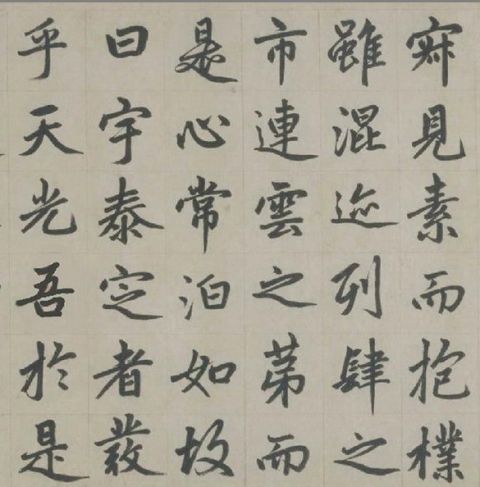 見素而抱樸
雖混迹列肆之
市連雲之第而
是心常泊如故
曰宇泰定者發
乎天光吾於是